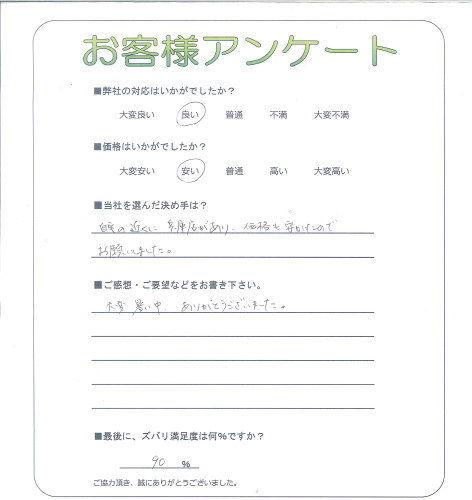 お客様アンケート
■弊社の対応はいかがでしたか?
大変良い 良い 普通 不満 大変不満
■価格はいかがでしたか?
大変安い 安い 普通 高い 大変高い
■当社を選んだ決め手は?
自宅の近くに 兵庫店があり、価格も安かったので
お願いしました。
■ご感想・ご要望などをお書き下さい。
大変 暑い中 ありがとうございました。
■最後に、ズバリ満足度は何%ですか?
90 %
ご協力頂き、誠にありがとうございました。